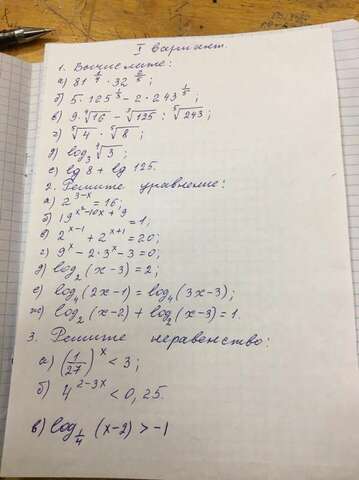 I вариант.
1. Вычислите:
а) 81^{\frac{3}{4}} · 32^{\frac{2}{5}};
б) 5 · 125^{\frac{1}{3}} - 2 · 243^{\frac{1}{5}};
в) 9 · \sqrt[4]{16} - \sqrt[3]{125} : \sqrt[5]{243};
г) \sqrt[5]{4} · \sqrt[5]{8};
д) log_3 \sqrt[3]{3};
е) lg 8 + lg 125.
2. Решите уравнение:
а) 2^{3-x} = 16;
б) 19^{x^2-10x+9} = 1;
в) 2^{x-1} + 2^{x+1} = 20;
г) 9^x - 2 · 3^x - 3 = 0;
д) log_2 (x-3) = 2;
е) log_4 (2x-1) = log_4 (3x-3);
ж) log_2 (x-2) + log_2 (x-3) = 1.
3. Решите неравенство:
а) (\frac{1}{27})^x < 3;
б) 4^{2-3x} < 0,25.
в) log_{\frac{1}{4}} (x-2) > -1